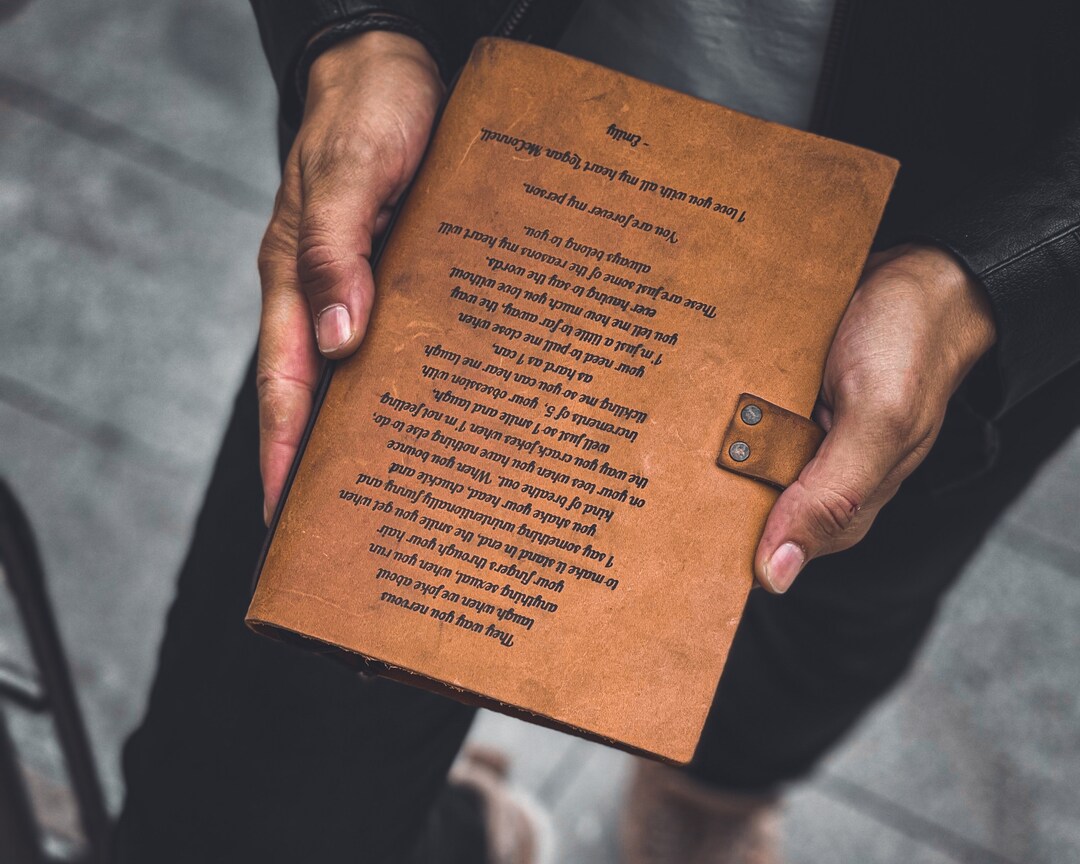 They way you nervous
laugh when we joke about
anything sexual, when you run
your fingers through your hair
to make it stand in end, the smile you get when
I say something unintentionally funny and
you shake your head, chuckle and
kind of breathe out. When you bounce
on your toes when you have nothing else to do,
the way you crack jokes when I'm not feeling
well just so I smile and laugh,
increments of 5, your obsession with
tickling me so you can hear me laugh
as hard as I can,
your need to pull me close when
I'm just a little to far away, the way
you tell me how much you love without
ever having to say the words.
These are just some of the reasons my heart will
always belong to you.
You are forever my person.
I love you with all my heart Logan McConnell.
- Emily